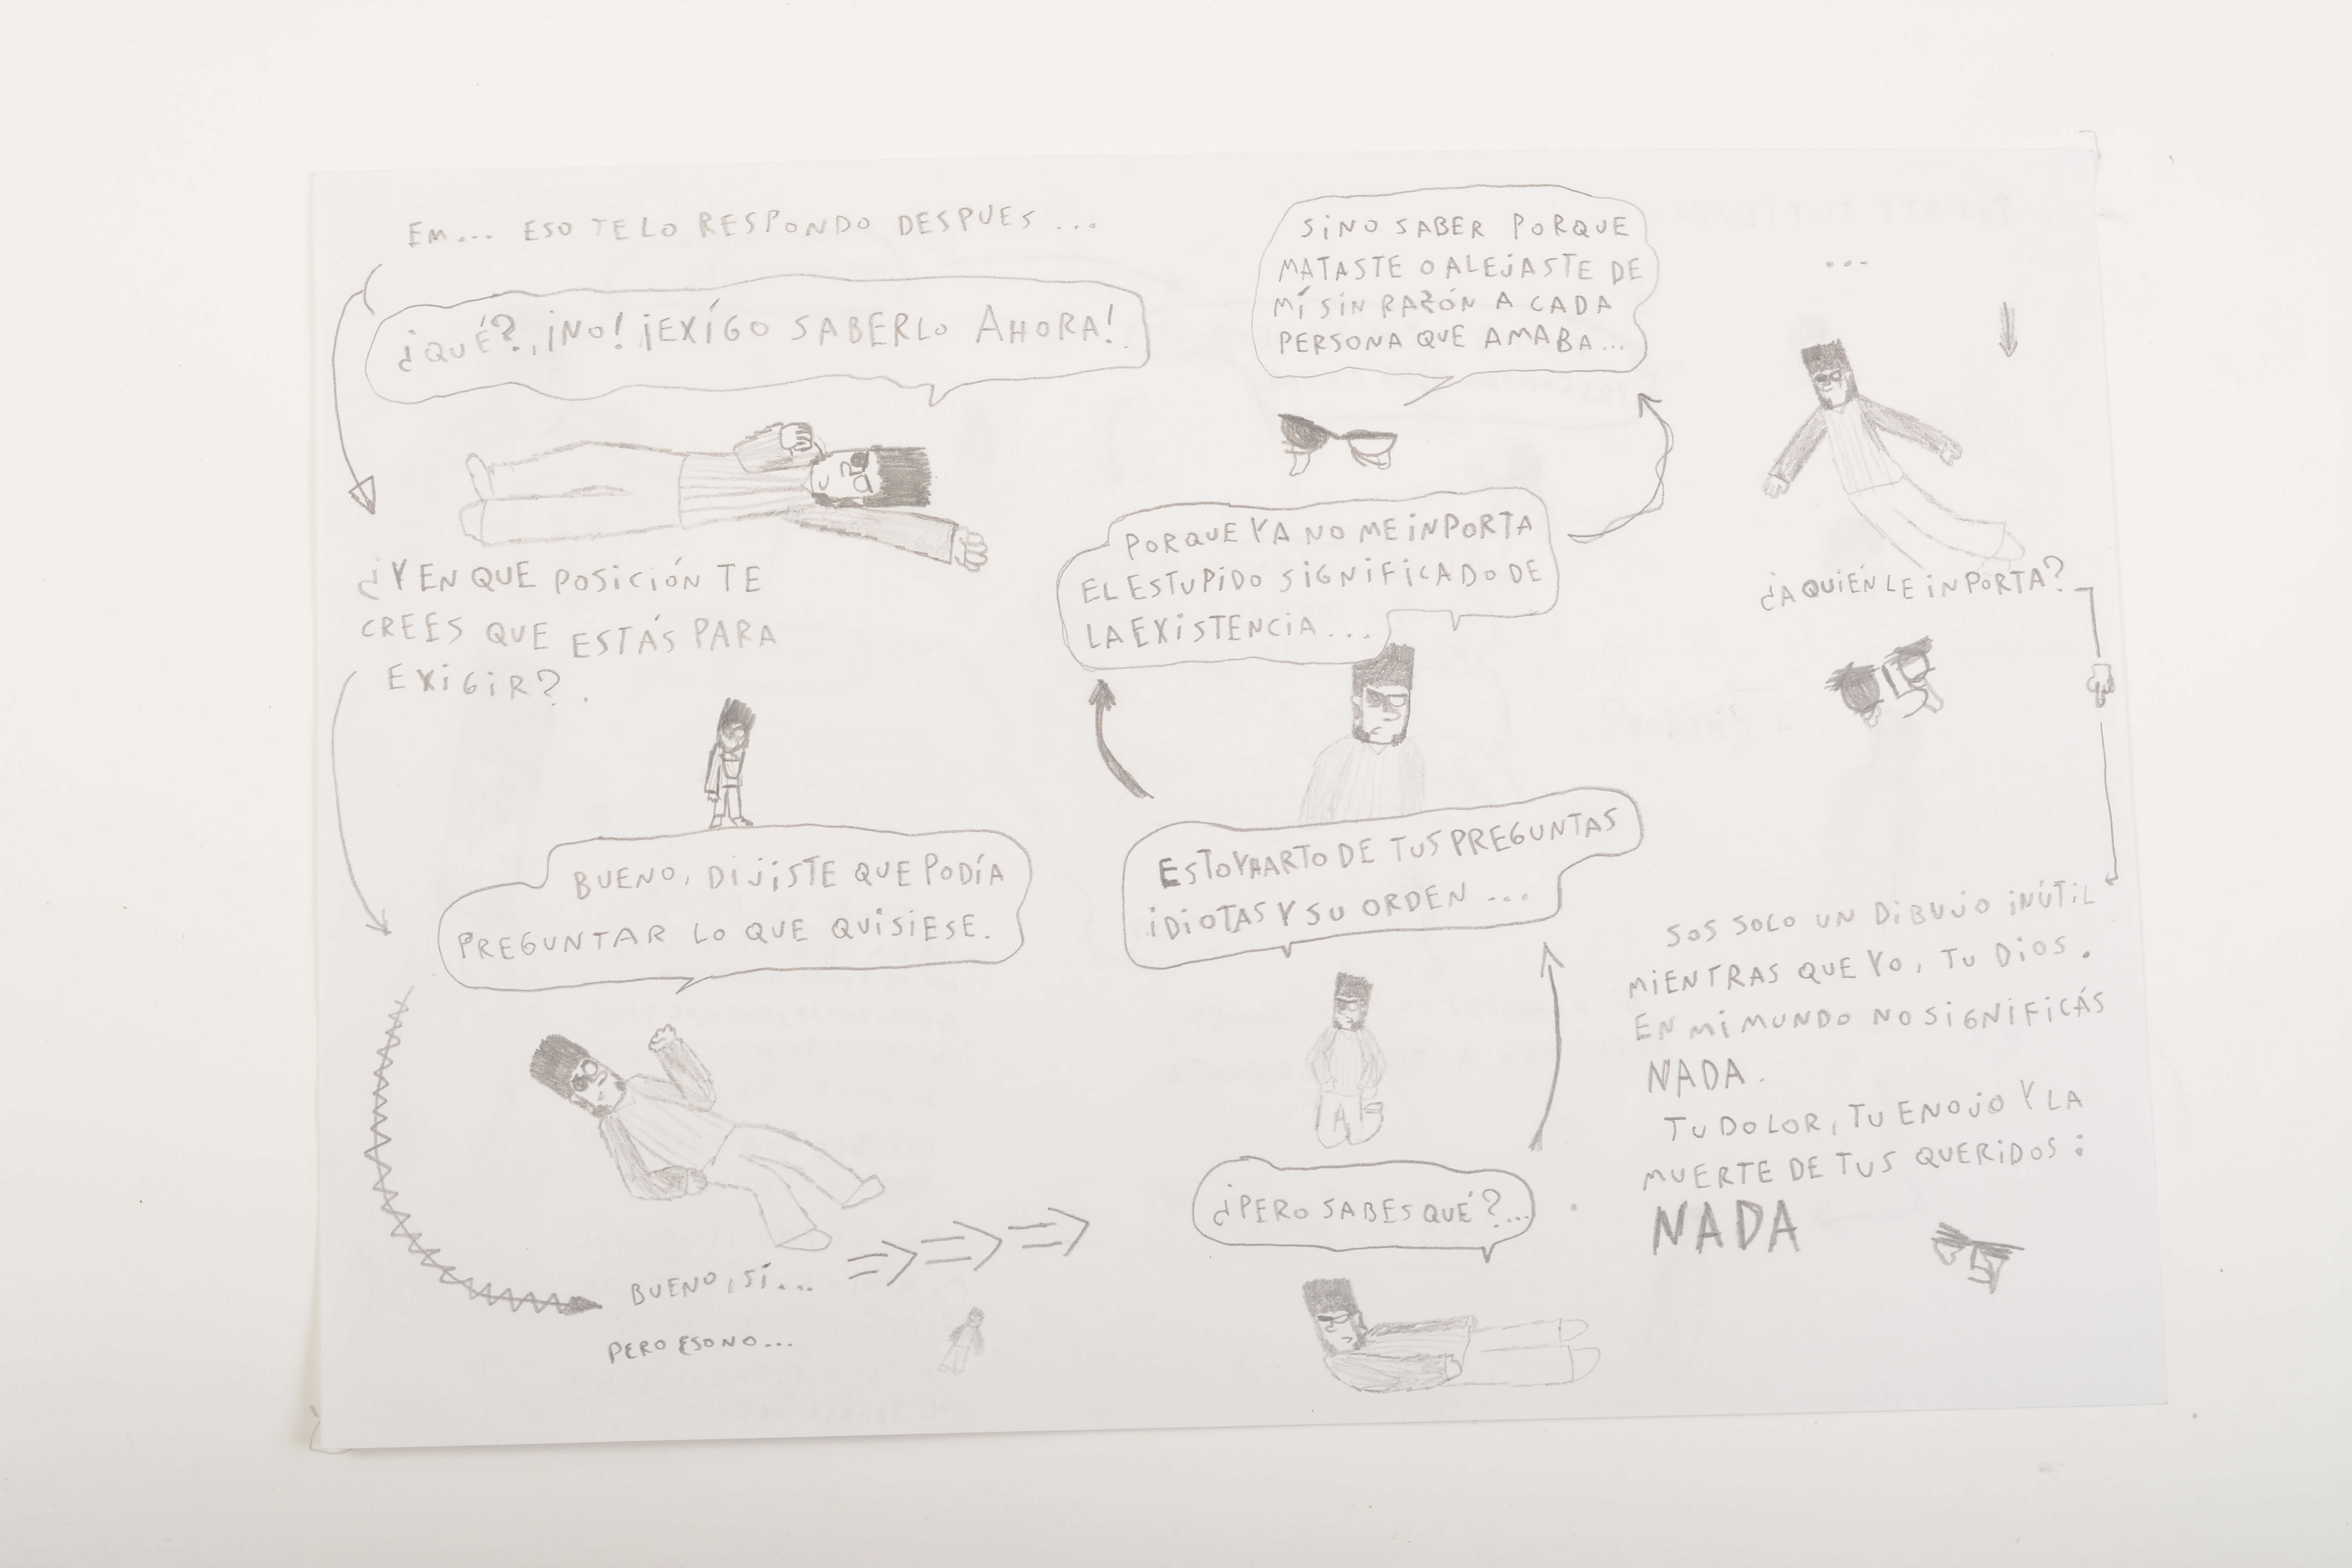 EM... ESO TE LO RESPONDO DESPUES ...
¿QUÉ?, ¡NO! ¡EXÍGO SABERLO AHORA!
¿Y EN QUE POSICIÓN TE
CREES QUE ESTÁS PARA
EXIGIR?.
BUENO, DIJISTE QUE PODÍA
PREGUNTAR LO QUE QUISIESE.
BUENO, SÍ...
PERO ESO NO...
¿PERO SABES QUÉ?...
ESTOY HARTO DE TUS PREGUNTAS
IDIOTAS Y SU ORDEN ...
PORQUE YA NO ME INPORTA
EL ESTUPIDO SIGNIFICADO DE
LA EXISTENCIA...
SINO SABER PORQUE
MATASTE O ALEJASTE DE
MÍ SIN RAZÓN A CADA
PERSONA QUE AMABA...
...
¿A QUIÉN LE INPORTA?
SOS SOLO UN DIBUJO INÚTIL
MIENTRAS QUE YO, TU DIOS.
EN MI MUNDO NO SIGNIFICÁS
NADA.
TU DOLOR, TU ENOJO Y LA
MUERTE DE TUS QUERIDOS:
NADA